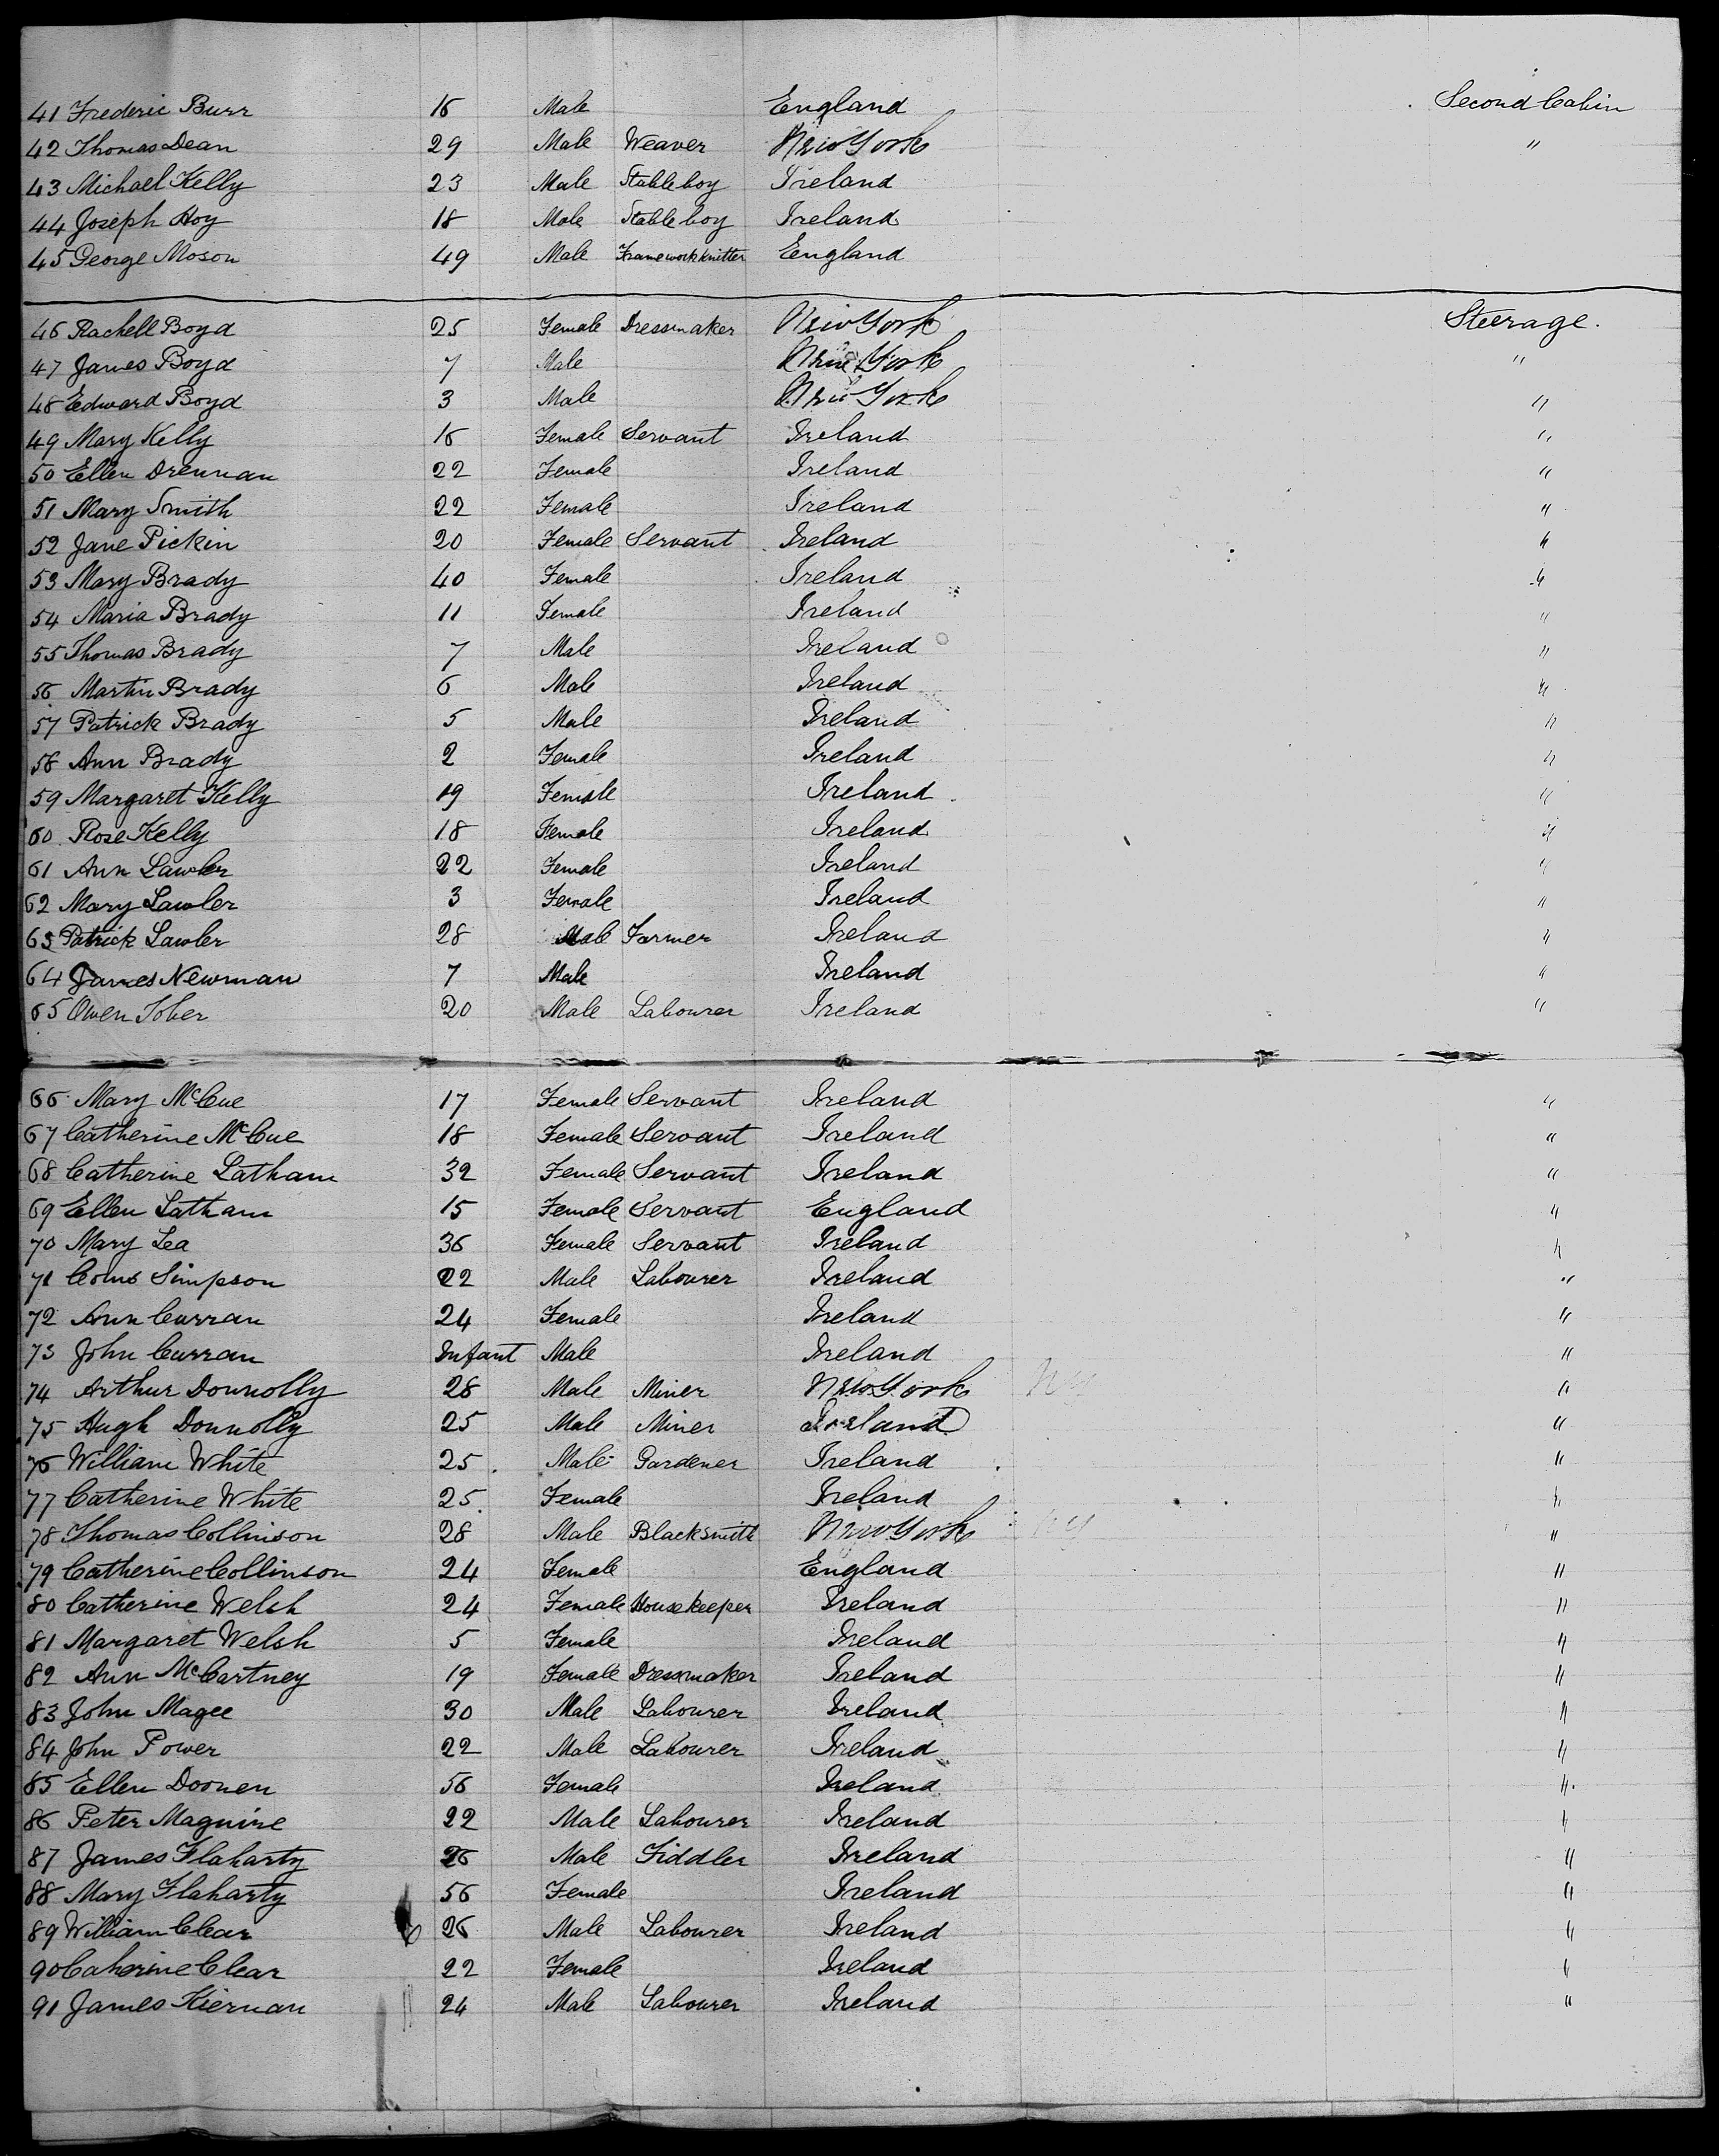 41 Frederic Burr 16 Male England Second Cabin
42 Thomas Dean 29 Male Weaver New York "
43 Michael Kelly 23 Male Stableboy Ireland
44 Joseph Hoy 18 Male Stable boy Ireland
45 George Moson 49 Male Frameworkknitter England
46 Rachell Boyd 25 Female Dressmaker New York Steerage.
47 James Boyd 7 Male New York "
48 Edward Boyd 3 Male New York "
49 Mary Kelly 16 Female Servant Ireland "
50 Ellen Drennan 22 Female Ireland "
51 Mary Smith 22 Female Ireland "
52 Jane Pickin 20 Female Servant Ireland "
53 Mary Brady 40 Female Ireland "
54 Maria Brady 11 Female Ireland "
55 Thomas Brady 7 Male Ireland "
56 Martin Brady 6 Male Ireland "
57 Patrick Brady 5 Male Ireland "
58 Ann Brady 2 Female Ireland "
59 Margaret Kelly 19 Female Ireland "
60 Rose Kelly 18 Female Ireland "
61 Ann Lawler 22 Female Ireland "
62 Mary Lawler 3 Female Ireland "
63 Patrick Lawler 28 Male Farmer Ireland "
64 James Newman 7 Male Ireland "
65 Owen Tober 20 Male Labourer Ireland "
66 Mary McCue 17 Female Servant Ireland "
67 Catherine McCue 18 Female Servant Ireland "
68 Catherine Latham 32 Female Servant Ireland "
69 Ellen Latham 15 Female Servant England "
70 Mary Lea 36 Female Servant Ireland "
71 Simpson 22 Male Labourer Ireland "
72 Ann Curran 24 Female Ireland "
73 John Curran Infant Male Ireland "
74 Arthur Donnolly 28 Male Miner New York NY "
75 Hugh Donnolly 25 Male Miner Ireland "
76 William White 25 Male Gardener Ireland "
77 Catherine White 25 Female Ireland "
78 Thomas Collinson 28 Male Blacksmith New York NY "
79 Catherine Collinson 24 Female England "
80 Catherine Welsh 24 Female Housekeeper Ireland "
81 Margaret Welsh 5 Female Ireland "
82 Ann McCartney 19 Female Dressmaker Ireland "
83 John Magee 30 Male Labourer Ireland "
84 John Power 22 Male Labourer Ireland "
85 Ellen Doonen 56 Female Ireland "
86 Peter Maguire 22 Male Labourer Ireland "
87 James Flaharty 26 Male Fiddler Ireland "
88 Mary Flaharty 56 Female Ireland "
89 William Clear 26 Male Labourer Ireland "
90 Caherine Clear 22 Female Ireland "
91 James Kiernan 24 Male Labourer Ireland "